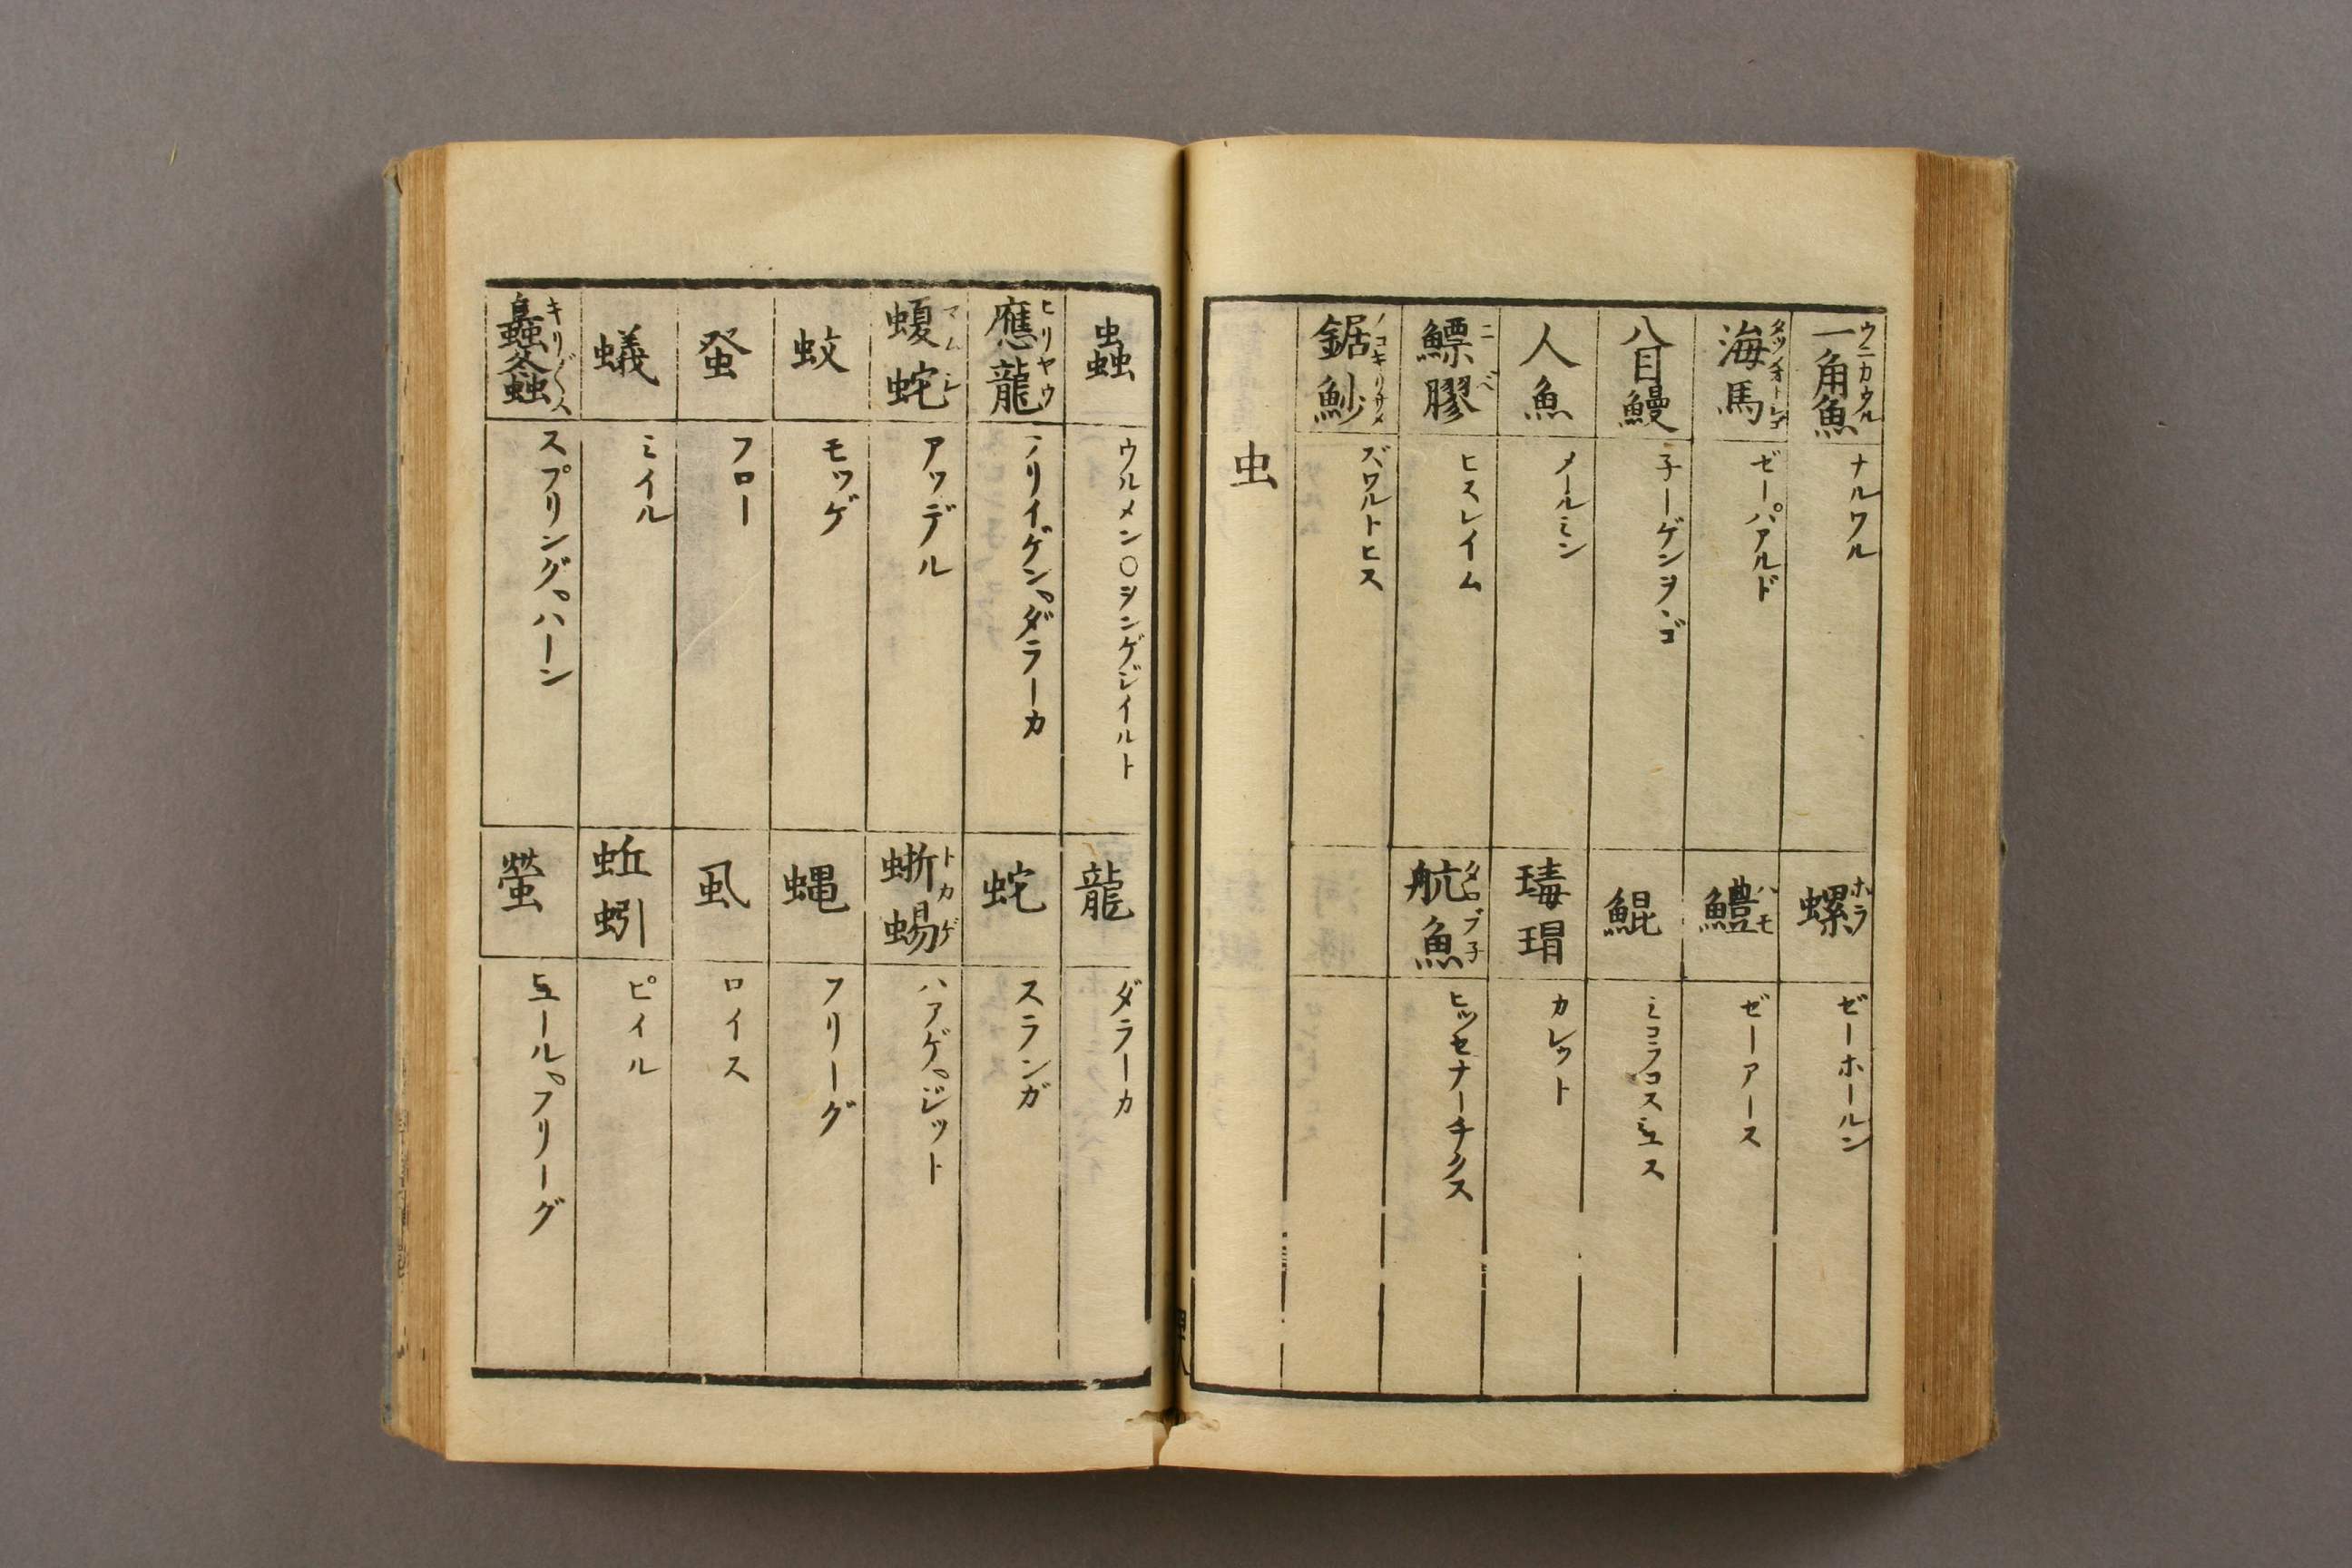 一角魚 ウニカウル
ナルワル
螺 ホラ
ゼーホールン
海馬 タツノオトシゴ
ゼーパアルド
鱧 ハモ
ゼーアース
八目鰻
子ーゲンヲヽゴ
鯤
ミコラコスミュス
人魚
メールミン
瑇瑁
カレット
鰾膠 ニベ
ヒスレイム
魧魚 タコブ子
ヒッセナーチクス
鋸魦 ノコキリサメ
ズワルトヒス
虫
蟲
ウルメン〇ヲンゲジイルト
龍
ダラーカ
應龍 ヒリヤウ
フリイゲン゜ダラーカ
蛇
スランガ
蝮蛇 マムシ
アッデル
蜥蜴 トカゲ
ハアゲ゜ジット
蚊
モッゲ
蝿
フリーグ
蚤
フロー
虱
ロイス
蟻
ミイル
蚯蚓
ピイル
螽 キリ〴〵ス
スプリング゜ハーン
螢
ヒュール゜フリーグ